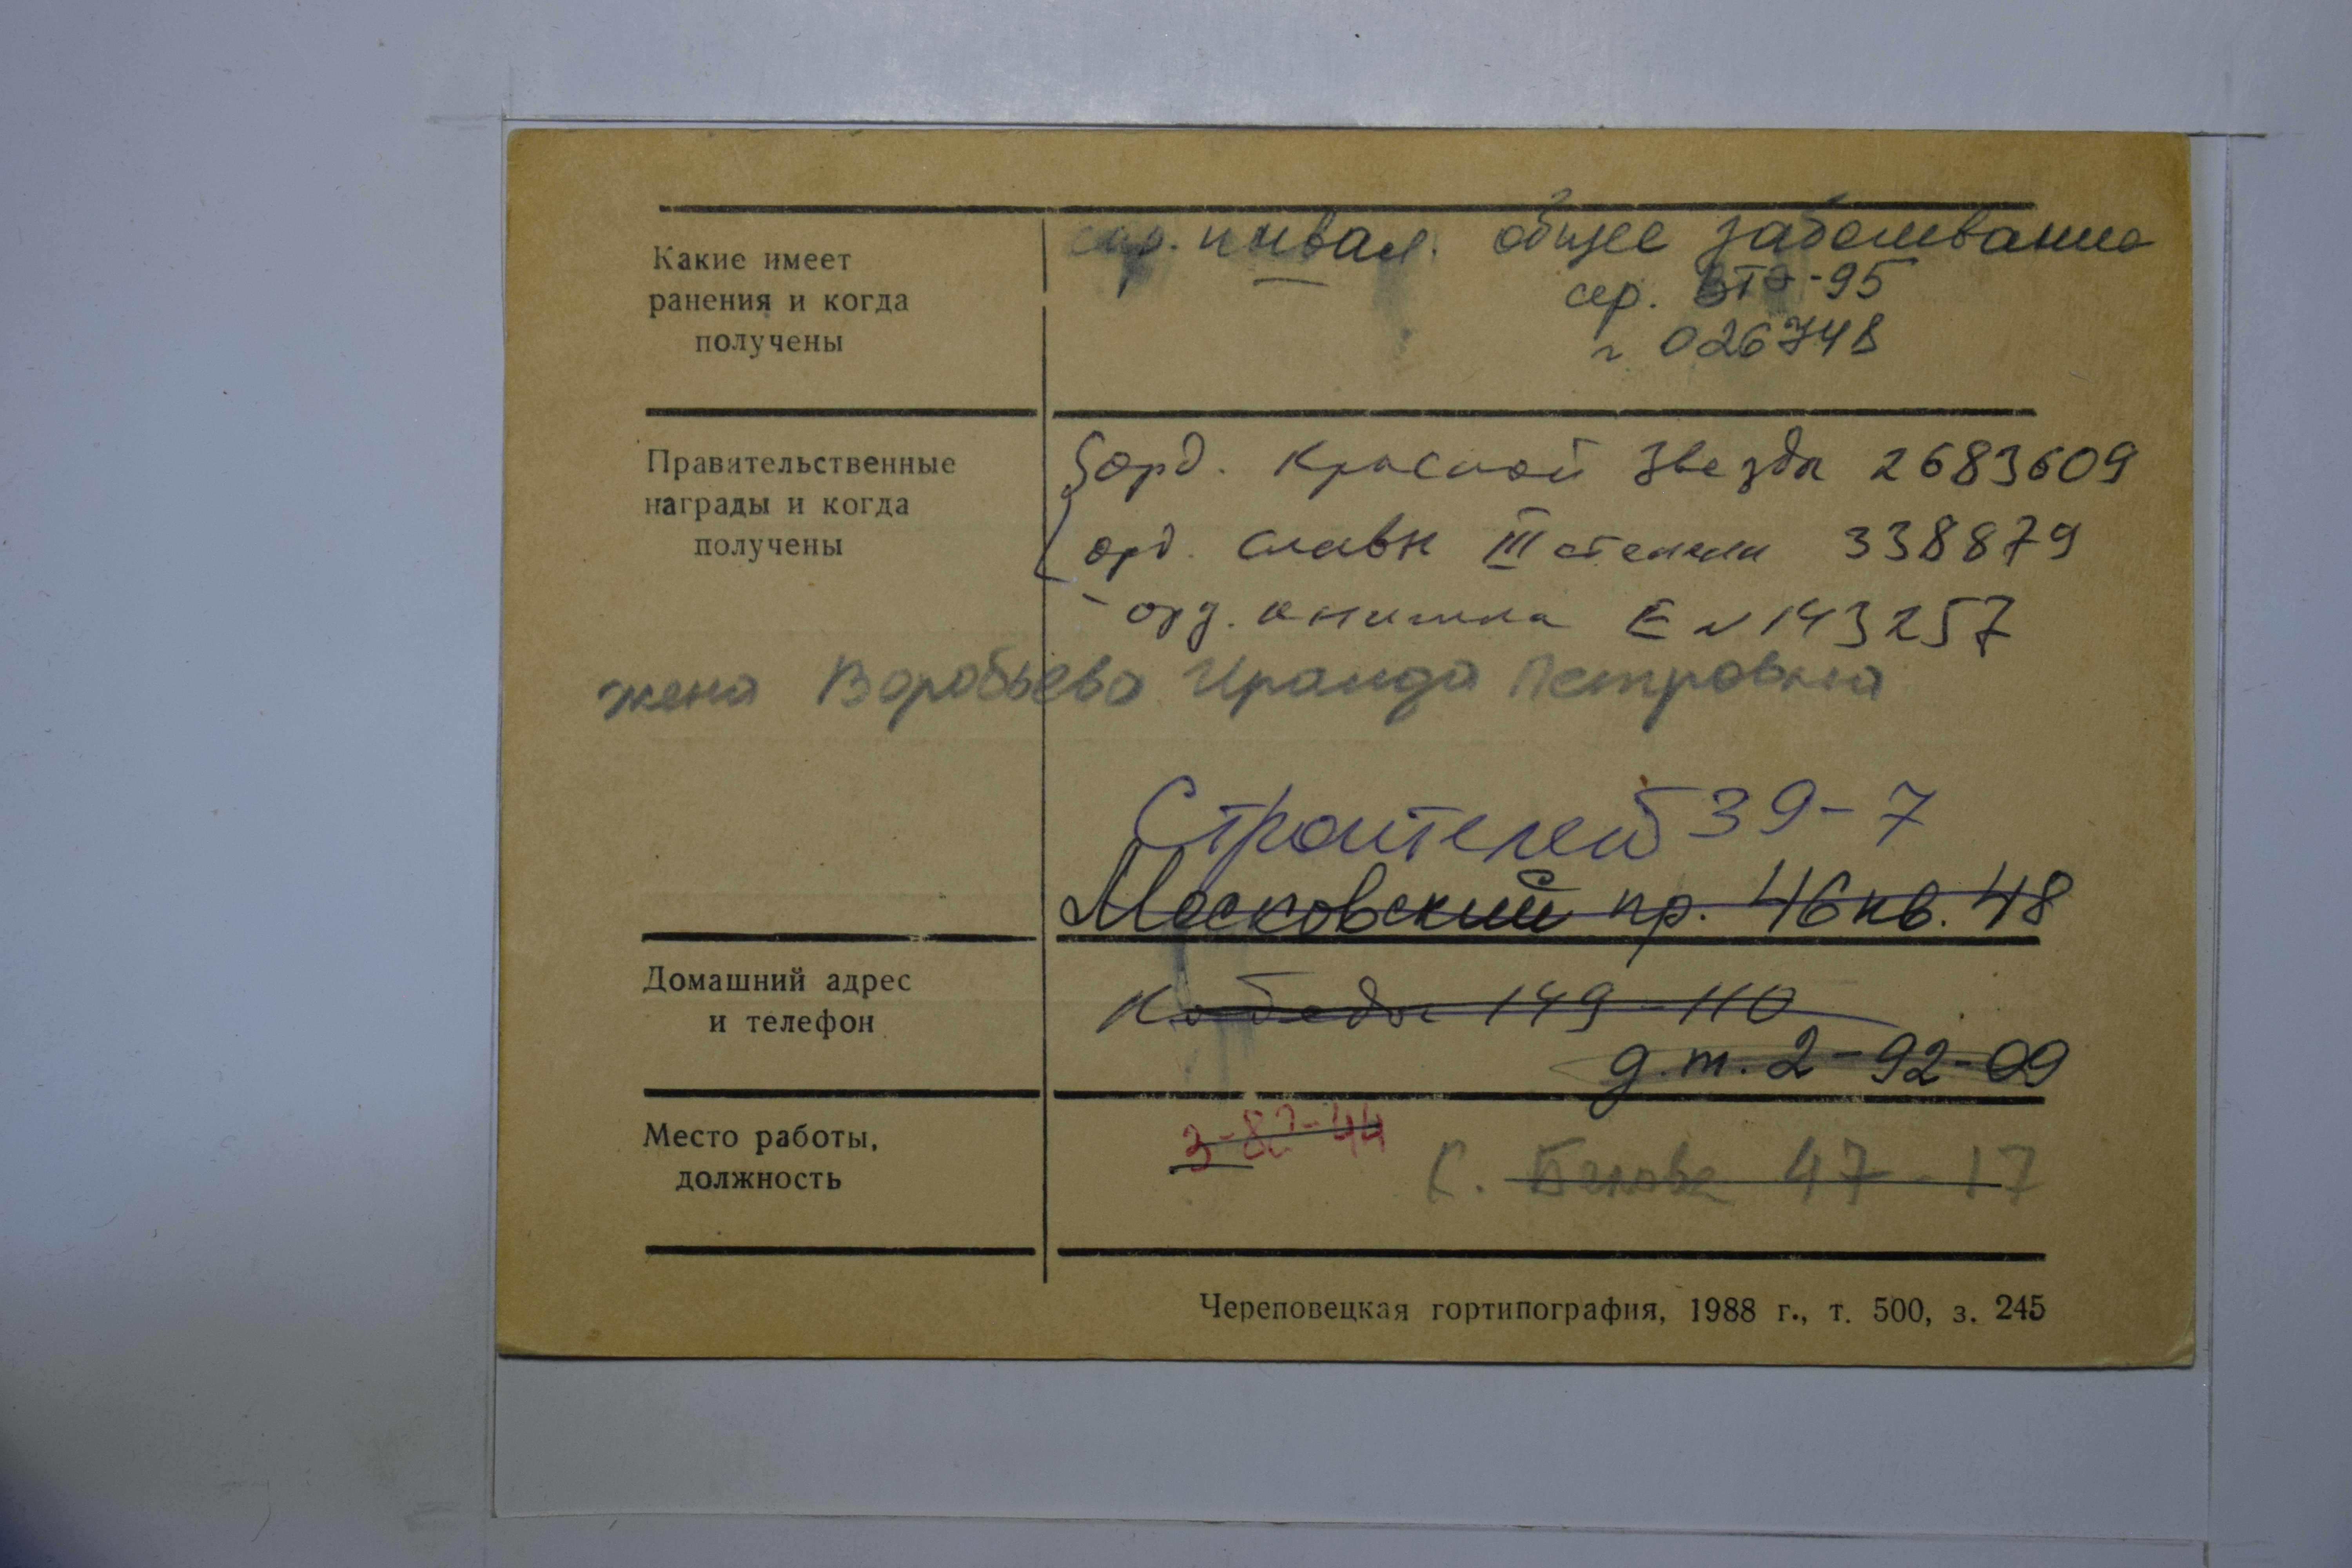 Какие имеет
ранения и когда
получены
инвал. общее заболевание
сер. ВТЭ-95
г 026748
Правительственные
награды и когда
получены
орд. Красной Звезды 2683609
орд. Славы III степени 338879
- орд. книжка Е № 143257
жена Воробьева Ираида Петровна
Строителей 39-7
Московский пр. 46 кв. 48
Домашний адрес
и телефон
Победы 149-110
д.т. 2-92-09
Место работы,
должность
3-82-44
К. Белова 47-17
Череповецкая гортипография, 1988 г., т. 500, з. 245